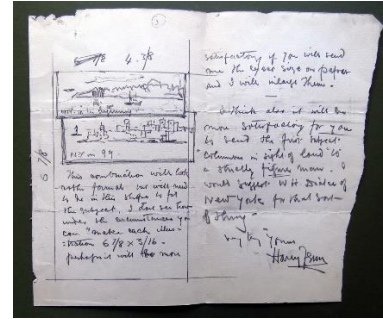 4 3/8
6 7/8
1
N.Y. in 99
This combination will look
rather formal
to be in this shape to fit
the subject. I do see how
under the circumstances you
can make each illus-
tration 6 7/8 x 3/16 -
perhaps it will be more
satisfactory if you will send
me the exact size on paper
and I will enlarge them.
I think also it will be
more satisfactory for you
to send the first subject
Columbus in sight of land
a strictly figure man. I
would suggest
New York for that sort
of thing.
Very truly yours
Harry Fenn